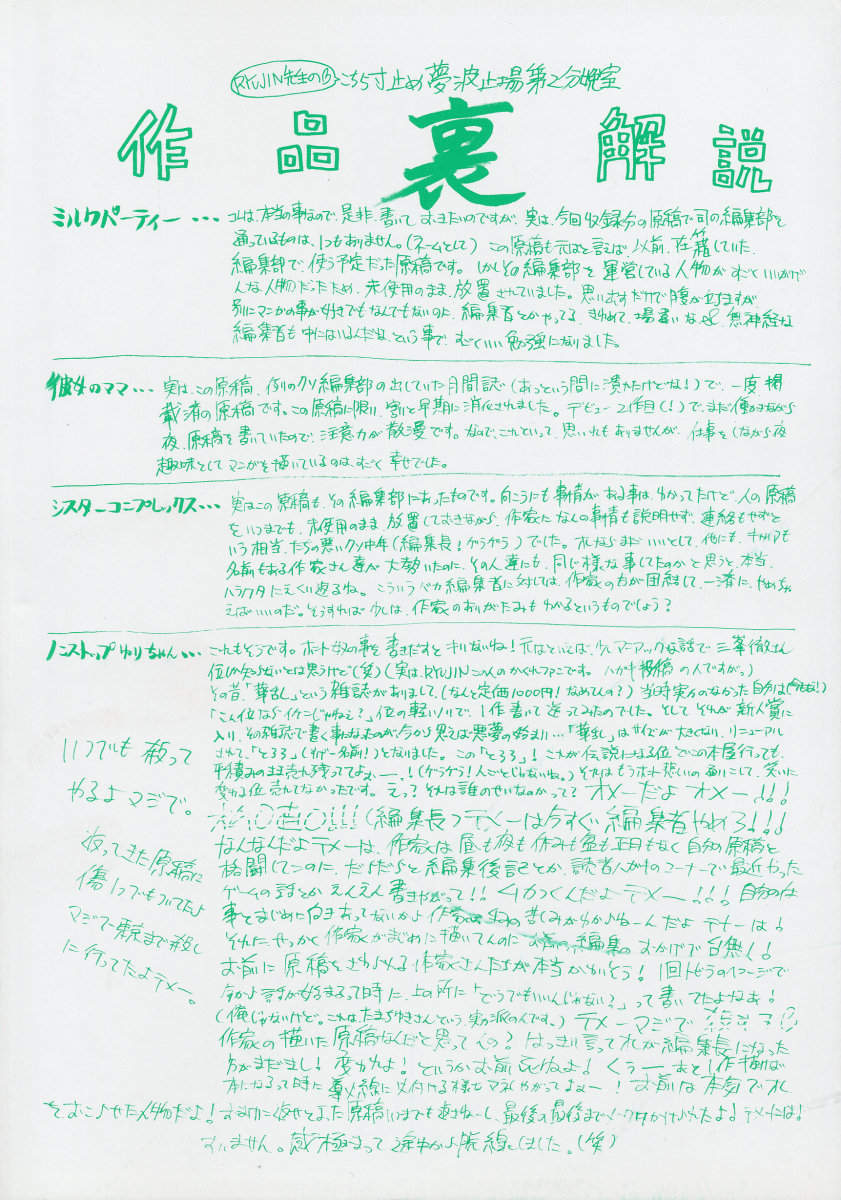 RYUJIN先生の こちら寸止め夢波止場第2分娩室
作品裏解説
ミルクパーティー・・・ コレは、本当の事なので、是非、書いておきたいのですが、実は、今回収録分の原稿で司の編集部を
通っているものは、1つもありません。(ネームとして) この原稿も元はと言えば、以前、在籍していた
編集部で、使う予定だった原稿です。しかしその編集部を運営している人物がすごくいいかげ
んな人物だったため、未使用のまま、放置されていました。思い出すだけで腹が立ちますが
別にマンガの事が好きでもなんでもないのに、編集者とかやってる、きわめて、場違いな、無神経な
編集者も中にはいるんだな、という事で、すごくいい勉強になりました。
彼女のママ・・・ 実は、この原稿、例のクソ編集部の出していた月間誌(あっという間に潰れたけどな!)で、一度掲
載済の原稿です。この原稿に限り、割と早期に消化されました。デビュー2作目(!)で、まだ働きながら
夜、原稿を書いていたので、注意力が散漫です。なので、これといって、思い入れもありませんが、仕事をしながら夜
趣味としてマンガを描いているのは、すごく幸せでした。
シスターコンプレックス・・・ 実はこの原稿も、その編集部にあったものです。向こうにも事情がある事は、わかってたけど、人の原稿
をいつまでも、未使用のまま放置しておきながら、作家になんの事情も説明せず、連絡もせずと
いう相当、たちの悪いクソ中年(編集長!ゲラゲラ)でした。オレならまだいいとして、他にも、キャリアも
名前もある作家さん達が大勢いたのに、その人達にも、同じ様な事してたのかと思うと、本当、
ハラワタにえくり返るね。こういうバカ編集者に対しては、作家の方が団結して、一斉に、やめちゃ
えばいいのだ。そうすれば少しは、作家のありがたみもわかるというものでしょう?
ノンストップゆりちゃん・・・ これもそうです。ホント奴の事を書きだすとキリないね!元はといえば、少しマニアックな話で三峯徹さん
位しか知らないとは思うけど(笑)(実は、RYUJINこの人のかくれファンです。ハガキ投稿の人ですが。)
その昔「華乱」という雑誌がありまして、(なんと定価1000円!なめてんの?)当時実力のなかった自分は(今もな!)
「こん位ならイケんじゃねえ?」位の軽いノリで、1作書いて送ってみたのでした。そしてそれが新人賞に
入り、その雑誌で書く事になったのが、今から思えば悪夢の始まり・・・「華乱」はサイズが大きくなり、リニューアル
されて、「とろろ」(すげー名前!)となりました。この「とろろ」!これが伝説になる位どこの本屋行っても、
平積みのまま売れ残っててよぉー、!(ゲラゲラ!人ごとじゃないね。)それはもうホント悲しいの通りこして、笑いに
変わる位売れてなかったです。えっ?それは誰のせいなのかって?オメーだよオメー!!!
(編集長)テメーは今すぐ編集者やめろ!!!
なんなんだよテメーは、作家は昼も夜も休みも盆も正月もなく自分の原稿と
格闘してんのに、だらだらと編集後記とか、読者ハガキのコーナーで最近やった
ゲームの話とかえんえん書きやがって!!ムカつくんだよテメー!!!自分の仕
事とまじめに向きあってないから作家の苦しみがわからねーんだよテメーは!
それに、せっかく作家がまじめに描いてんのにお前の編集のおかげで台無し!
お前に原稿をさわられる作家さんたちが本当かわいそう!1回トビラのイメージで
今から話が始まるって時に、上の所に「どうでもいいんじゃない?」って書いてたよなぁ!
(俺じゃないけど。これはたまちゆきさんという、実力派の人です。)テメーマジで
作家の描いた原稿なんだと思ってんの?はっきり言ってオレが編集長になった
方がまだまし!変われよ!というかお前死ねよ!くぅーあと1作描けば
本になるって時に
をおこらせた人物だよ!
すいません。感極まって途中から脱線しました。(笑)
いつでも殺って
やるよマジで。
返ってきた原稿に
傷1つでもついてたら
マジで東京まで殺し
に行ってたよテメー。